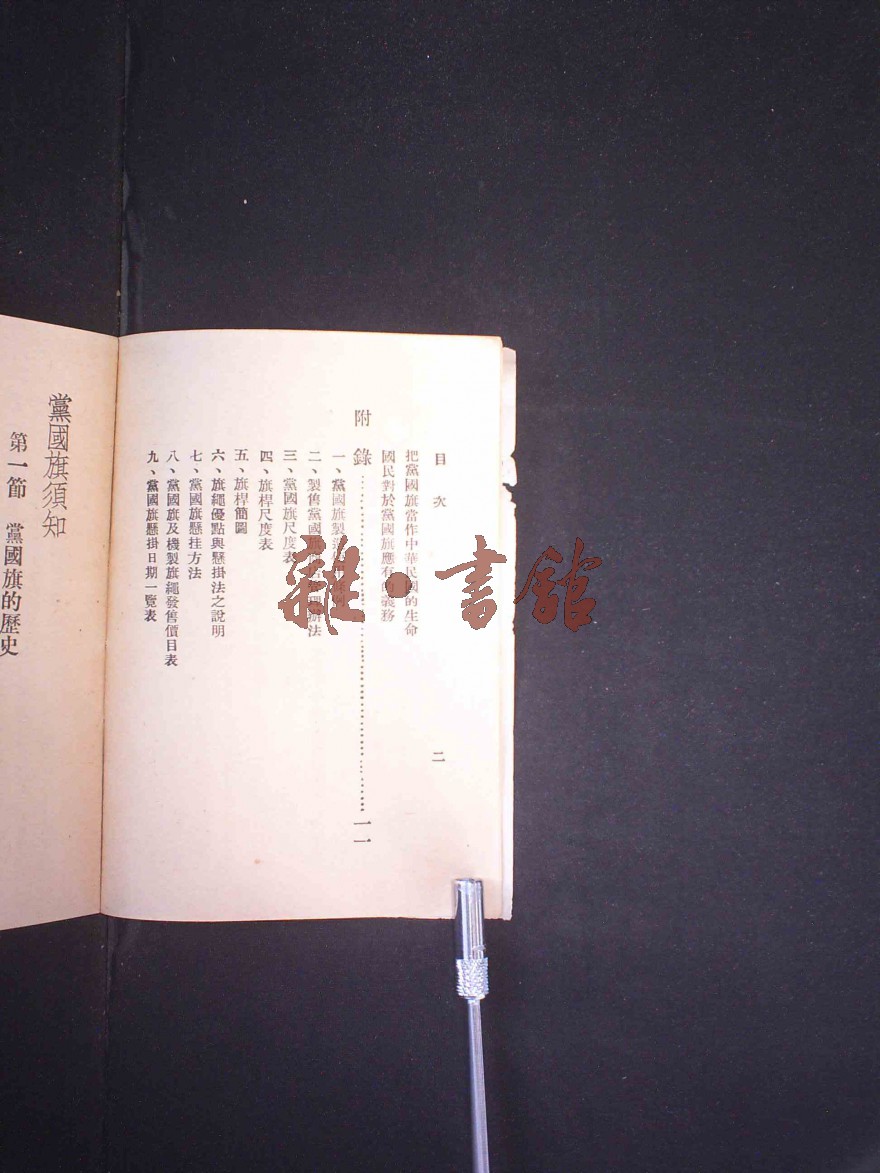 目次
二
把黨國旗當作中華民國的生命
國民對於黨國旗應有的義務
附錄……一一
一、黨國旗製
二、製售黨國旗辦法
三、黨國旗尺度表
四、旗桿尺度表
五、旗桿簡圖
六、旗繩優點與懸掛法之說明
七、黨國旗懸挂方法
八、黨國旗及機製旗繩發售價目表
九、黨國旗懸掛日期一覽表
黨國旗須知
第一節 黨國旗的歷史
雜·書館